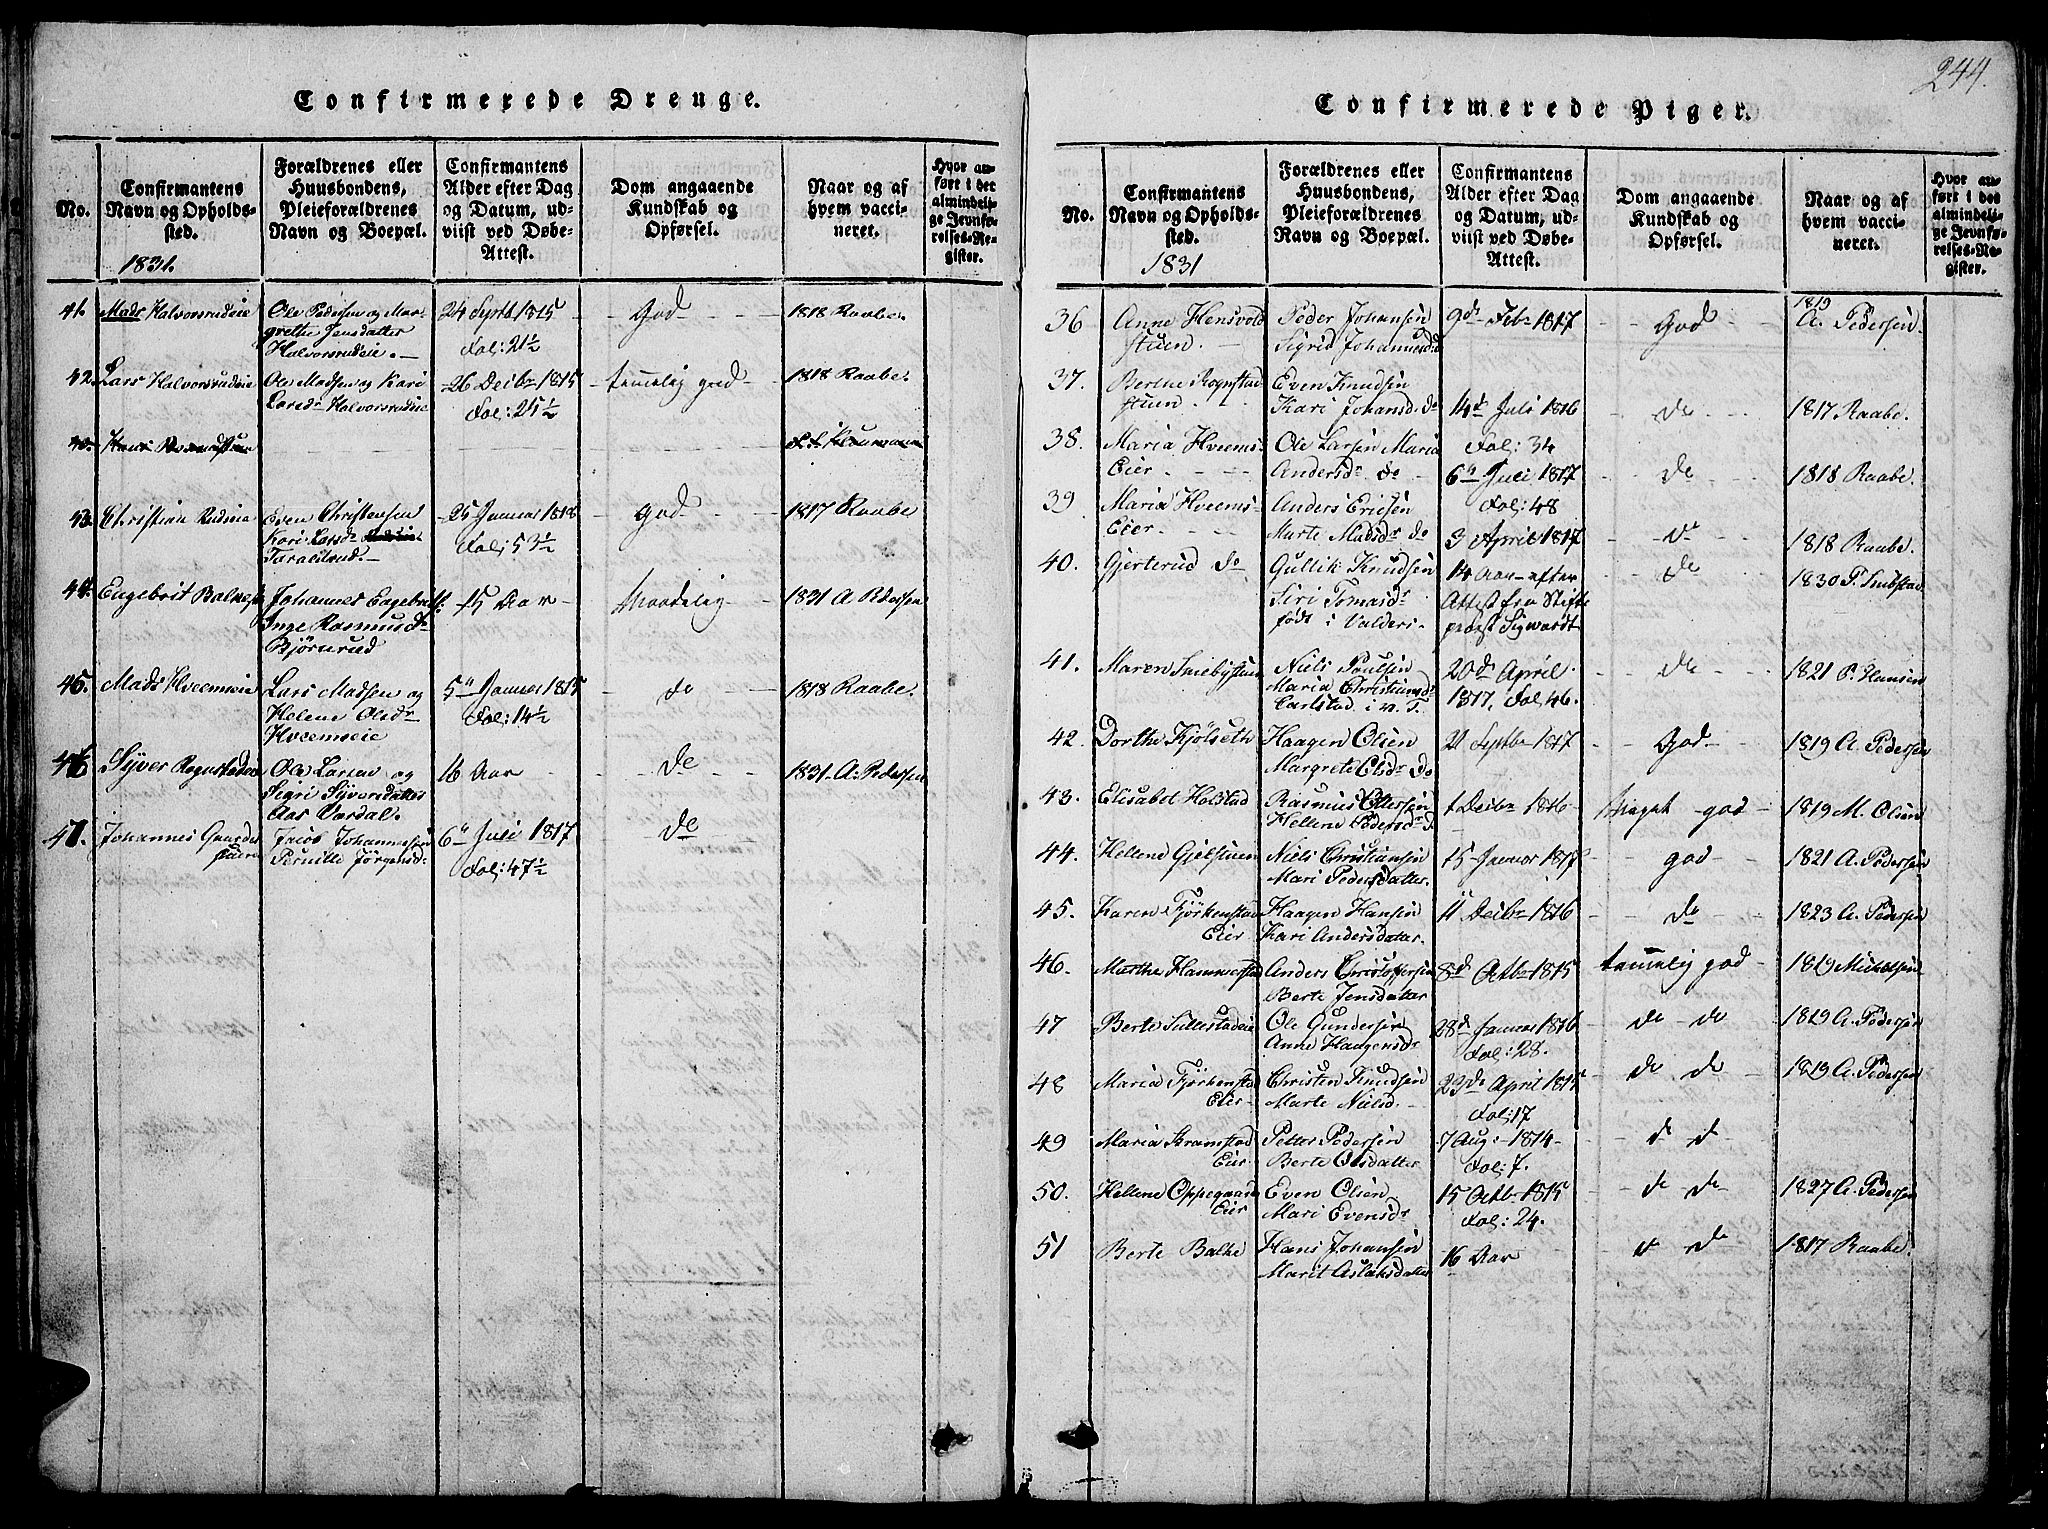 244.
Confirmerede Drenge.
No.
Confirmantens
Navn og Opholds-
sted.
1831.
Forældrenes eller
Huusbondens,
Pleieforældrenes
Navn og Boepæl.
Confirmantens
Alder efter Dag
og Datum, ud-
viist ved Døbe-
Attest.
Dom angaaende
Kundskab og
Opførsel.
Naar og af
hvem vacci-
neret.
Hvor an-
ført i det
almindeli-
ge Jevnfø-
relses-Re-
gister.
41. Mads Halvorsrudeie
Ole Pedersen og Mar-
grethe Jensdatter
Halvorsrudeie.
24 Septb. 1815
Fol: 21½
God
1818 Raabe.
42. Lars Halvorsrudeie
Ole Madsen og Kari
Larsdr Halvorsrudeie
26 Decbr 1815
Fol: 25½
temmelig god
1818 Raabe.
43. Christian Rudeie
Even Christensen
Kari Larsdr
Taraldsrud
25 Januar 1818
Fol: 53½
God
1817 Raabe
44. Engebrit Balke
Johannes Engebrets.
Inge Rasmusdr
Bjørnrud
15 Aar
Maadelig
1831 A Pedersen
45. Mads Hveemeie
Lars Madsen og
Helene Olsdr
Hveemeie
5te Januar 1815
Fol: 14½
do
1818 Raabe.
46 Syver Rognstadeie
Ole Larsen og
Sigri Syversdatter
Aas Værdal.
16 Aar
de
1831 A. Pedersen
47. Johannes
stuen
Jacob Johannesen
Pernille Jørgensd.
6te Juli 1817
Fol: 47½
de
Confirmerede Piger.
No.
Confirmantens
Navn og Opholds-
sted.
1831
Forældrenes eller
Huusbondens,
Pleieforældrenes
Navn og Boepæl.
Confirmantens
Alder efter Dag
og Datum, ud-
viist ved Døbe-
Attest.
Dom angaaende
Kundskab og
Opførsel.
Naar og af
hvem vacci-
neret.
Hvor an-
ført i det
almindeli-
ge Jevnfø-
relses-Re-
gister.
36 Anne Hensvold
stuen.
Peder Johansen
Sigrid Johannesd.
9de Febr 1817
God
1819
A. Pedersen
37. Berthe Rognstad
stuen
Even Knudsen
Kari Johansd. do
14de Juli 1816
de
1817 Raabe.
38. Maria Hveems-
Eier.
Ole Larsen Maria
Andersdr do
Fol: 34
6te Juli 1817
de
1818 Raabe.
39 Maria Hveems-
Eier
Anders Ericsen
Marte Madsdr do
Fol: 48
3 April 1817
de
1818 Raabe.
40. Gjerterud do
Gullik Knudsen
Siri Tomasdr
født i Valders.
14 Aar efter
Attest fra Stifts
provst Sigwardt
de
1830 P. Smebstad
41. Maren Smebystuen
Niels Poulsen
Maria Christiansdr
Carlstad i v. T.
20de April
1817. Fol. 46.
de
1821 P. Hansen
42. Dorthe Kjølseth
Haagen Olsen
Margrete Olsdr do
21 Septbr 1817
God
1819 A. Pedersen
43. Elisabet Holstad
Rasmus Ottersen
Hellene Pedersdr
1 Decbr 1816
Meget god
1819 M. Olsen
44. Hellene Gjelstuen
Niels Christiansen
Mari Pedersdatter.
15 Januar 1817
god
1821 A. Pedersen
45. Karen Fjørkenstad
Eier
Haagen Hansen
Kari Andersdatter.
11 Decbr 1816
de
1823 A. Pedersen
46. Marthe Hammerstad
Anders Christoffersen
Berte Jensdatter
8de Octbr 1815
temmelig god
1819 Michelsen
47 Berte Sillestadeie
Ole Gundersen
Anne Haagensdr
28de Januar 1816
Fol: 28.
de de
1819 A. Pedersen
48 Maria Fjørkenstad
Eier
Christen Knudsen
Marte Nielsd.
23de April 1815
Fol: 17
de de
1819 A. Pedersen
49 Maria Kramstad
Eier
Petter Pedersen
Berte Olsdatter
7 Aug: 1814
Fol: 7.
d d
50. Hellene Oppegaard
Eier
Even Olsen
Mari Evensdr
15 Octbr 1815
Fol: 24.
de de
1827 A. Pedersen
51 Berte Balke
Hans Johansen
Marit Aslaksdatter
16 Aar
d de
1817 Raabe.